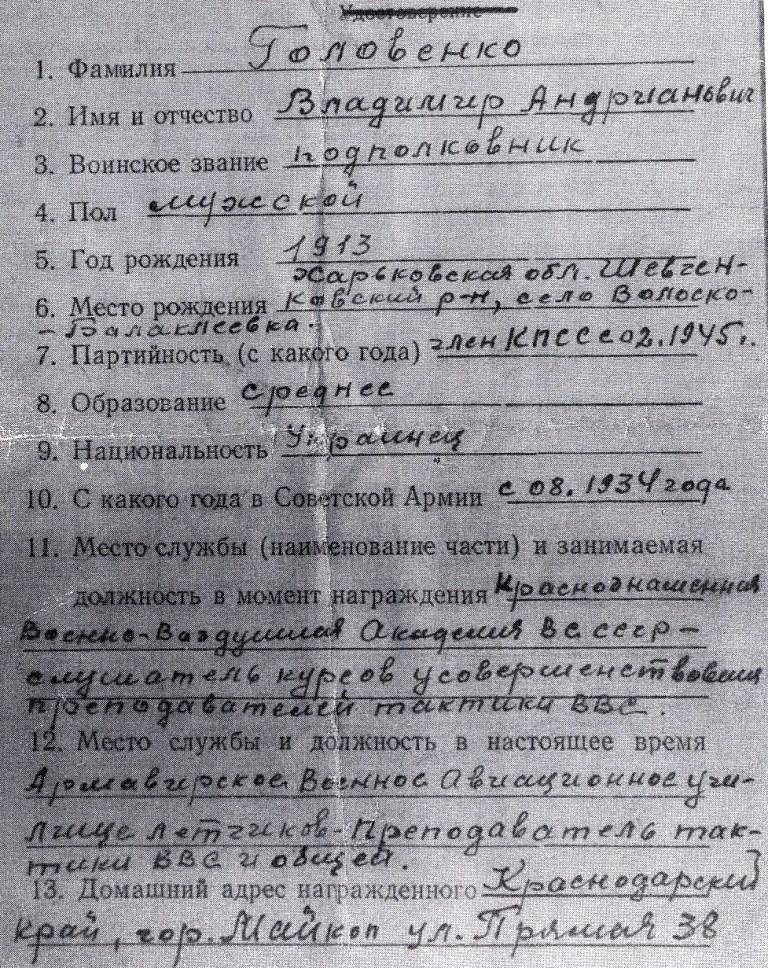 Удостоверение
1. Фамилия Головенко
2. Имя и отчество Владимир Андрианович
3. Воинское звание подполковник
4. Пол мужской
5. Год рождения 1913
Харьковская обл. Шевчен-
6. Место рождения ковский р-н, село Волоско-
-Балаклеевка.
7. Партийность (с какого года) член КПСС с 02.1945г.
8. Образование среднее
9. Национальность Украинец
10. С какого года в Советской Армии с 08.1934 года
11. Место службы (наименование части) и занимаемая
должность в момент награждения Краснознаменная
Военно-Воздушная Академия ВС СССР –
слушатель курсов усовершенствования
преподавателей тактики ВВС.
12. Место службы и должность в настоящее время
Армавирское Военное Авиационное учи-
лище летчиков - Преподаватель так-
тики ВВС и общей.
13. Домашний адрес награжденного Краснодарский
край, гор. Майкоп ул. Прямая 38